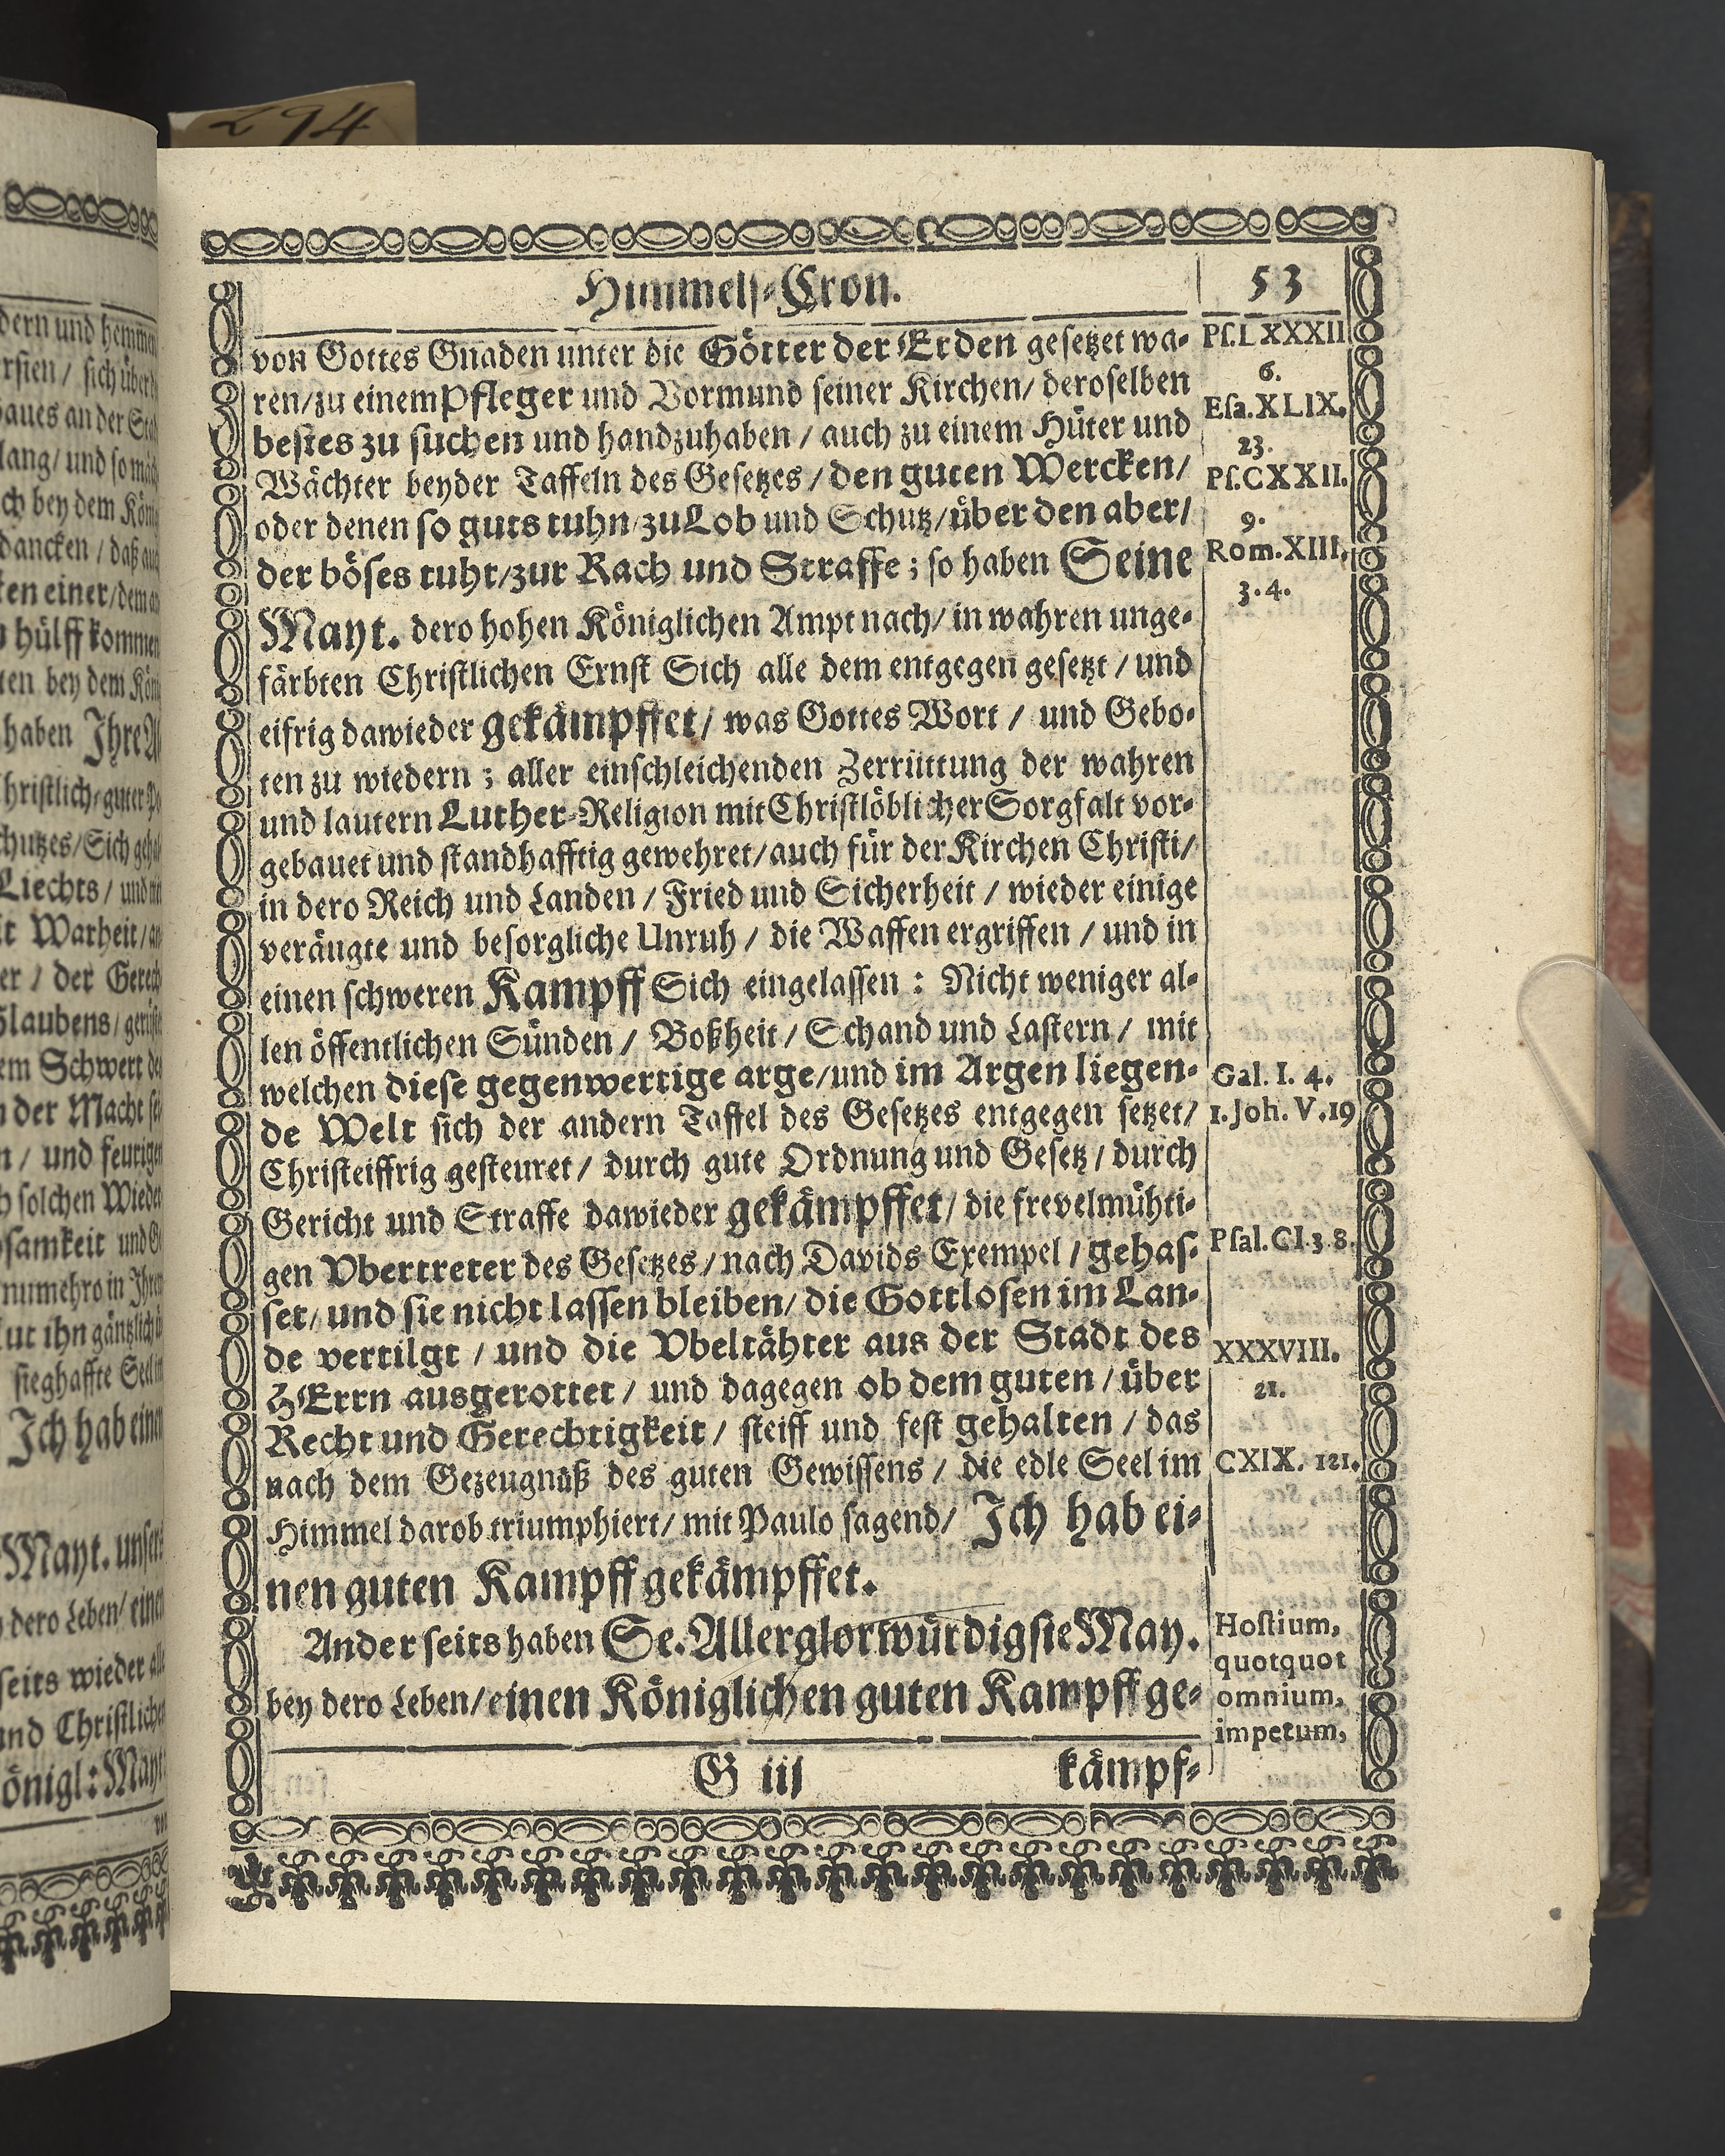 294
Himmels-Cron.
53
von Gottes Gnaden unter die Götter der Erden gesetzet wa-
ren/zu einem Pfleger und Vormund seiner Kirchen/ deroselben
bestes zu suchen und handzuhaben / auch zu einem Hüter und
Wächter beyder Taffeln des Gesetzes / den guten Wercken/
oder denen so guts tuhn/zu Lob und Schutz/über den aber/
der böses tuht/zur Rach und Straffe; so haben Seine
Mayt. dero hohen Königlichen Ampt nach/ in wahren unge-
färbten Christlichen Ernst Sich alle dem entgegen gesetzt / und
eifrig dawieder gekämpffet/ was Gottes Wort / und Gebo-
ten zu wiedern; aller einschleichenden Zerrüttung der wahren
und lautern Luther-Religion mit Christlöblicher Sorgfalt vor-
gebauet und standhafftig gewehret/auch für der Kirchen Christi/
in dero Reich und Landen / Fried und Sicherheit / wieder einige
veräugte und besorgliche Unruh / die Waffen ergriffen / und in
einen schweren Kampff Sich eingelassen: Nicht weniger al-
len öffentlichen Sünden / Boßheit / Schand und Lastern / mit
welchen diese gegenwertige arge/und im Argen liegen-
de Welt sich der andern Taffel des Gesetzes entgegen setzet/
Christeiffrig gesteuret / durch gute Ordnung und Gesetz / durch
Gericht und Straffe dawieder gekämpffet/ die frevelmühti-
gen Vbertreter des Gesetzes / nach Davids Exempel / gehas-
set/ und sie nicht lassen bleiben/ die Gottlosen im Lan-
de vertilgt / und die Vbeltähter aus der Stadt des
HErrn ausgerottet / und dagegen ob dem guten / über
Recht und Gerechtigkeit / steiff und fest gehalten / das
nach dem Gezeugnüß des guten Gewissens / die edle Seel im
Himmel darob triumphiert/ mit Paulo sagend/ Ich hab ei-
nen guten Kampff gekämpffet.
Anderseits haben Se. Allerglorwürdigste May.
bey dero Leben/einen Königlichen guten Kampff ge-
G iij
kämpf-
Ps. LXXXII
6.
Esa. XLIX.
23.
Ps. CXXII.
9.
Rom. XIII.
3. 4.
Gal. I. 4.
1. Joh. V. 19
Psal. CI. 3. 8.
XXXVIII.
21.
CXIX. 121.
Hostium,
quotquot
omnium,
impetum,